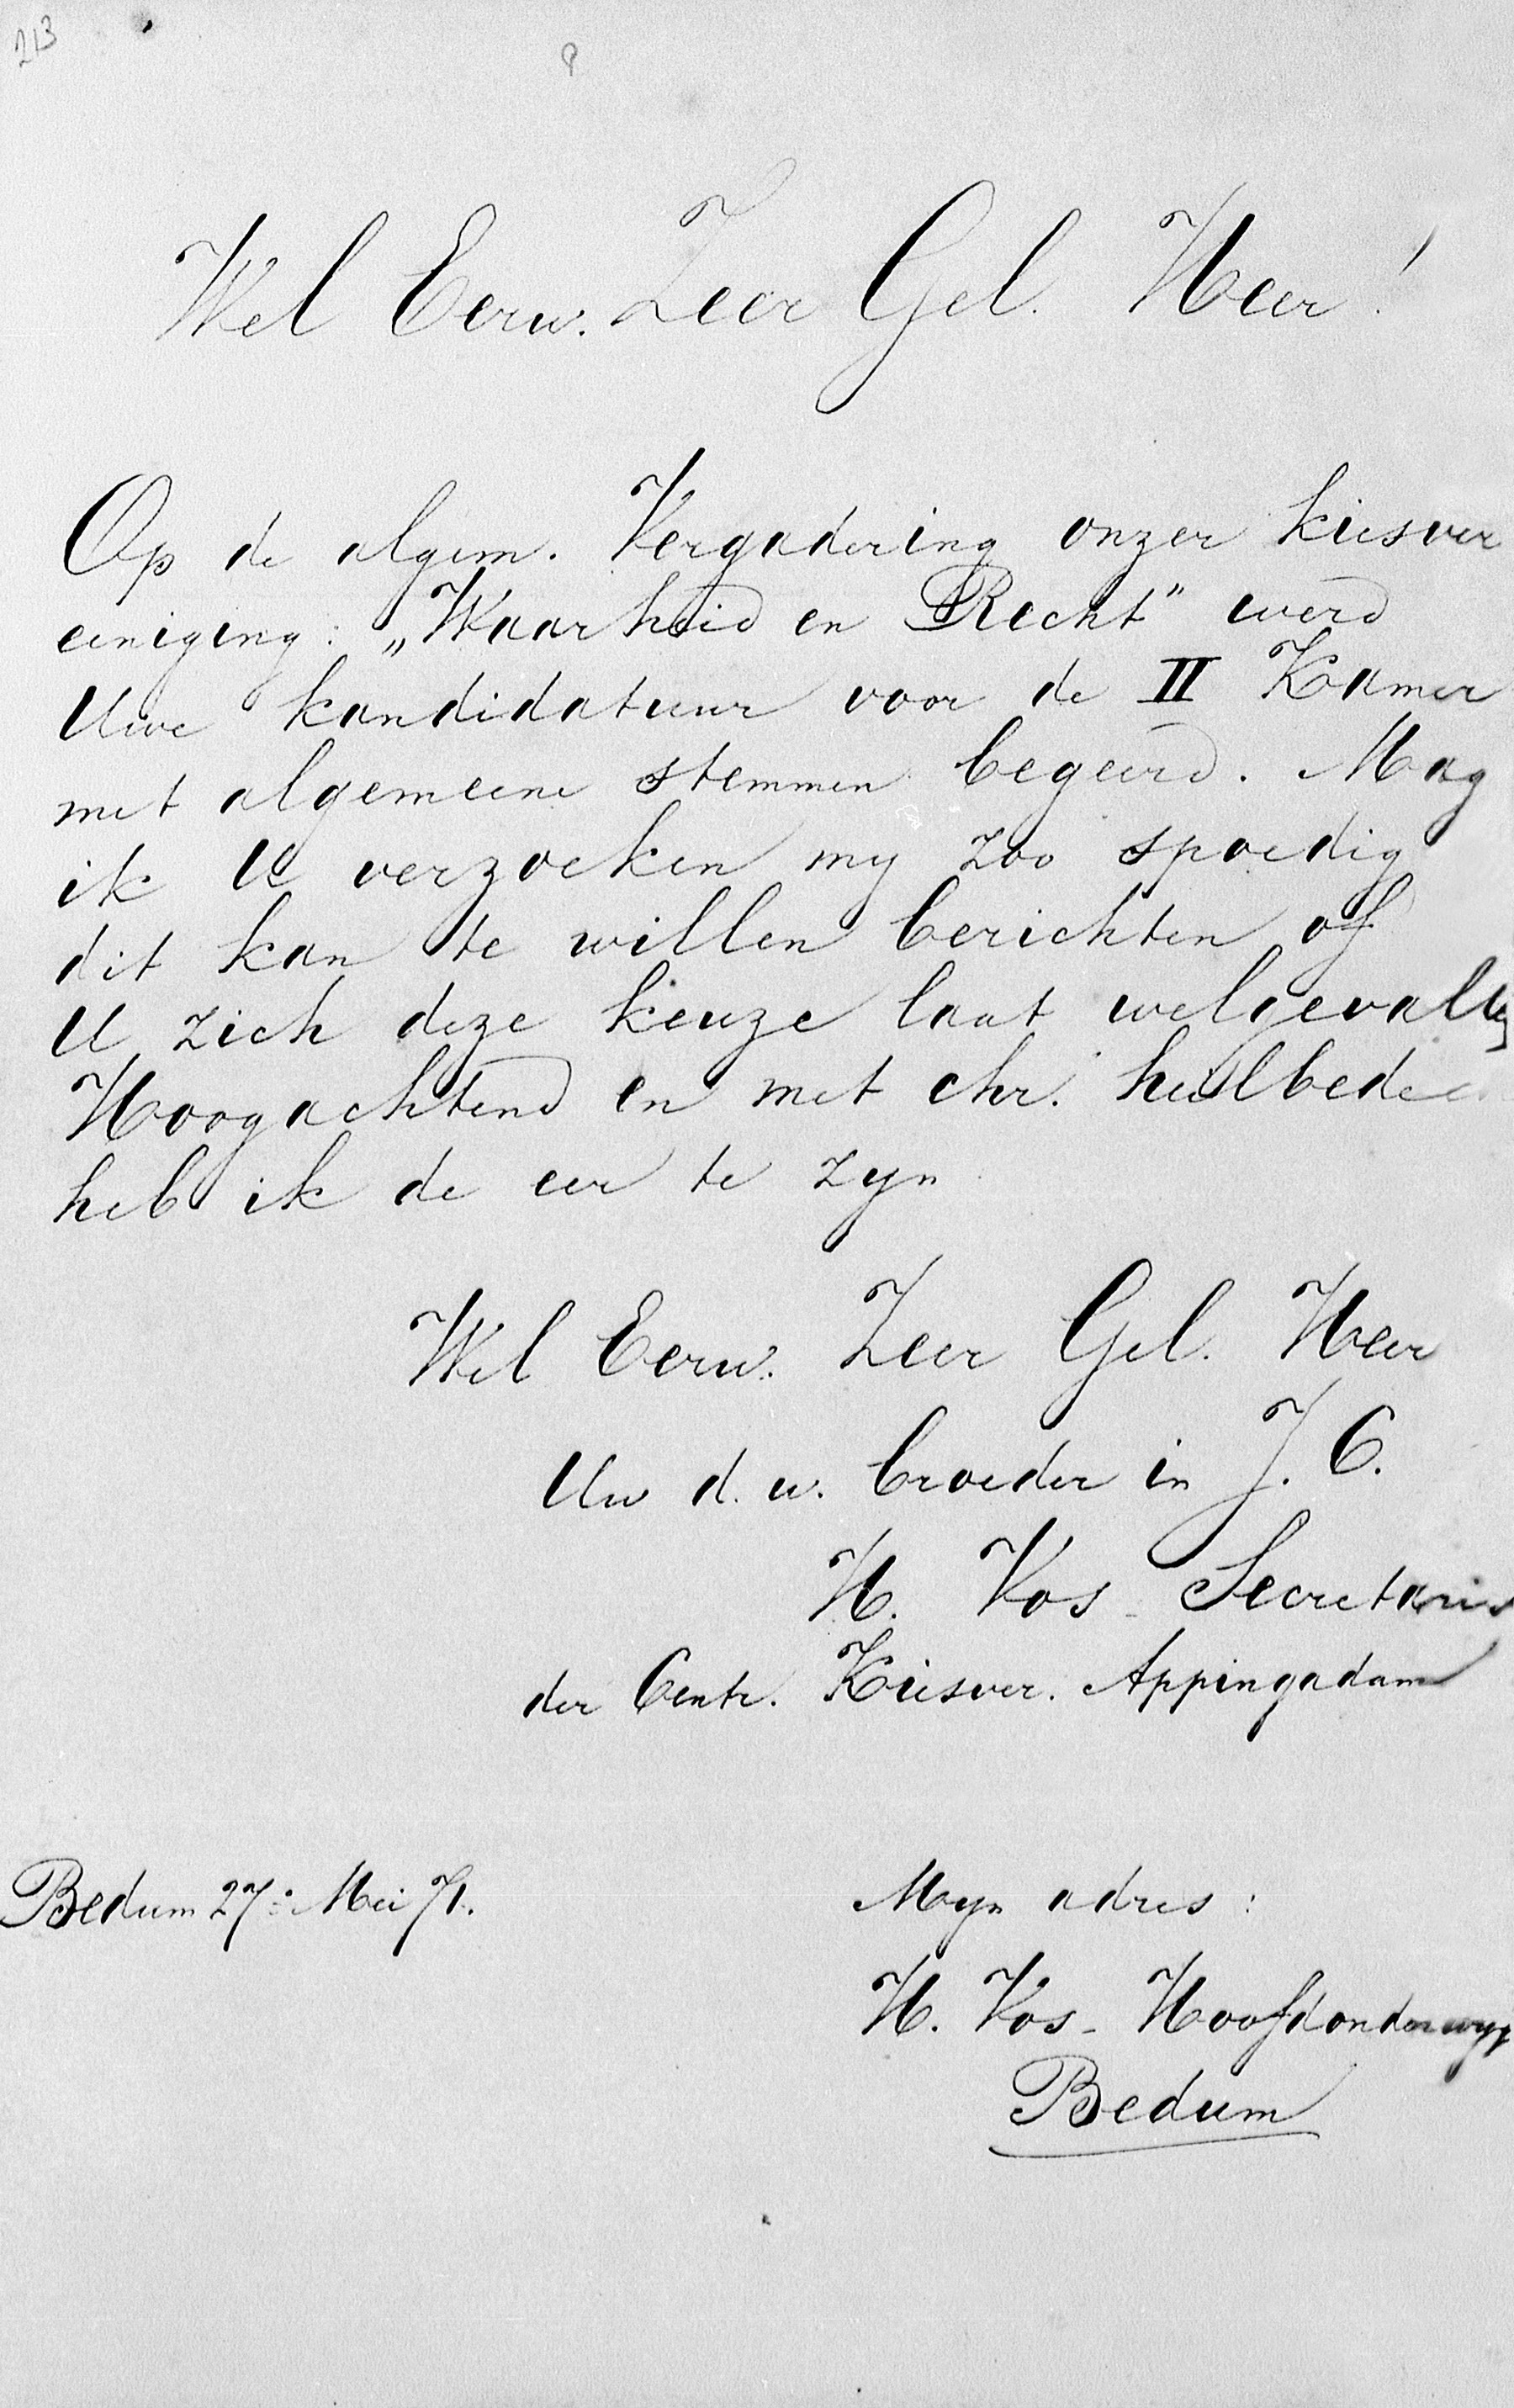 213
Wel Eerw. Zeer Gel. Heer!
Op de algem. Vergadering onzer kiesver
eeniging: „Waarheid en Recht" werd
Uwe kandidatuur voor de II Kamer
met algemeene stemmen begeerd. Mag
ik U verzoeken my zoo spoedig
dit kan te willen berichten of
U zich deze keuze laat welgevallen
Hoogachtend en met chr. heilbede
heb ik de eer te zyn
Wel Eerw. Zeer Gel. Heer
Uw d. w. broeder in J. C.
H. Vos - Secretaris
der Centr. Kiesver. Appingadam
Bedum 27: Mei 71.
Myn adres:
H. Vos - Hoofdonderwyz
Bedum